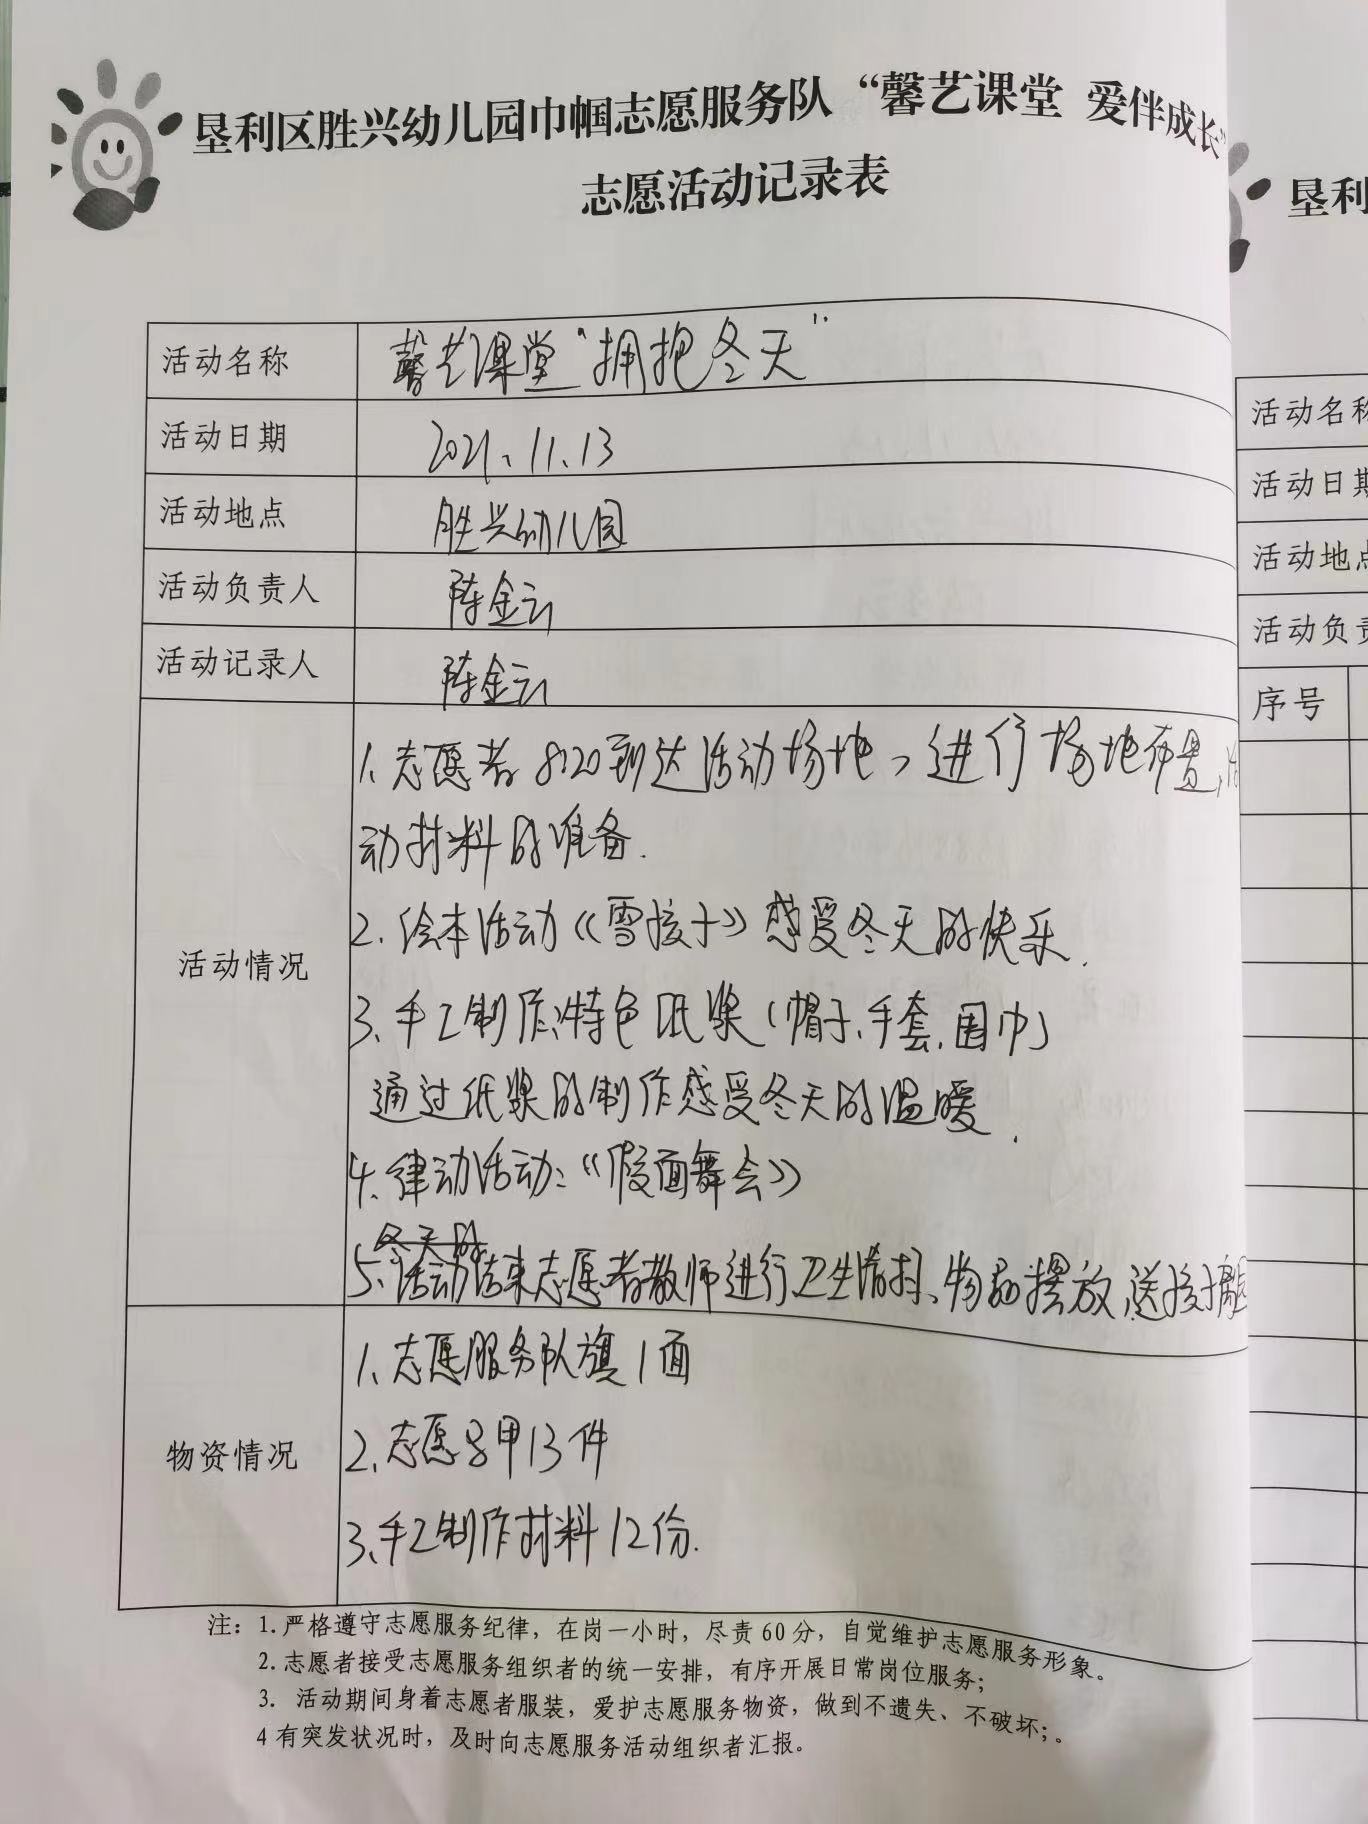 垦利区胜兴幼儿园巾帼志愿服务队“馨艺课堂 爱伴成长”
志愿活动记录表
活动名称 馨艺课堂“拥抱冬天”
活动日期 2021、11、13
活动地点 胜兴幼儿园
活动负责人 陈金云
活动记录人 陈金云
活动情况
1、志愿者8:20到达活动场地,进行场地布置、活
动材料的准备.
2.绘本活动《雪孩子》感受冬天的快乐.
3、手工制作:特色纸浆(帽子、手套、围巾)
通过纸浆的制作感受冬天的温暖.
4、律动活动:《假面舞会》
冬天的
5、活动结束志愿者教师进行卫生清扫、物品摆放、送孩子离园
物资情况
1、志愿服务队旗1面
2、志愿马甲13件
3、手工制作材料12份.
注:1.严格遵守志愿服务纪律,在岗一小时,尽责60分,自觉维护志愿服务形象。
2.志愿者接受志愿服务组织者的统一安排,有序开展日常岗位服务;
3. 活动期间身着志愿者服装,爱护志愿服务物资,做到不遗失、不破坏;。
4 有突发状况时,及时向志愿服务活动组织者汇报。
垦利
活动名称
活动日期
活动地点
活动负责
序号